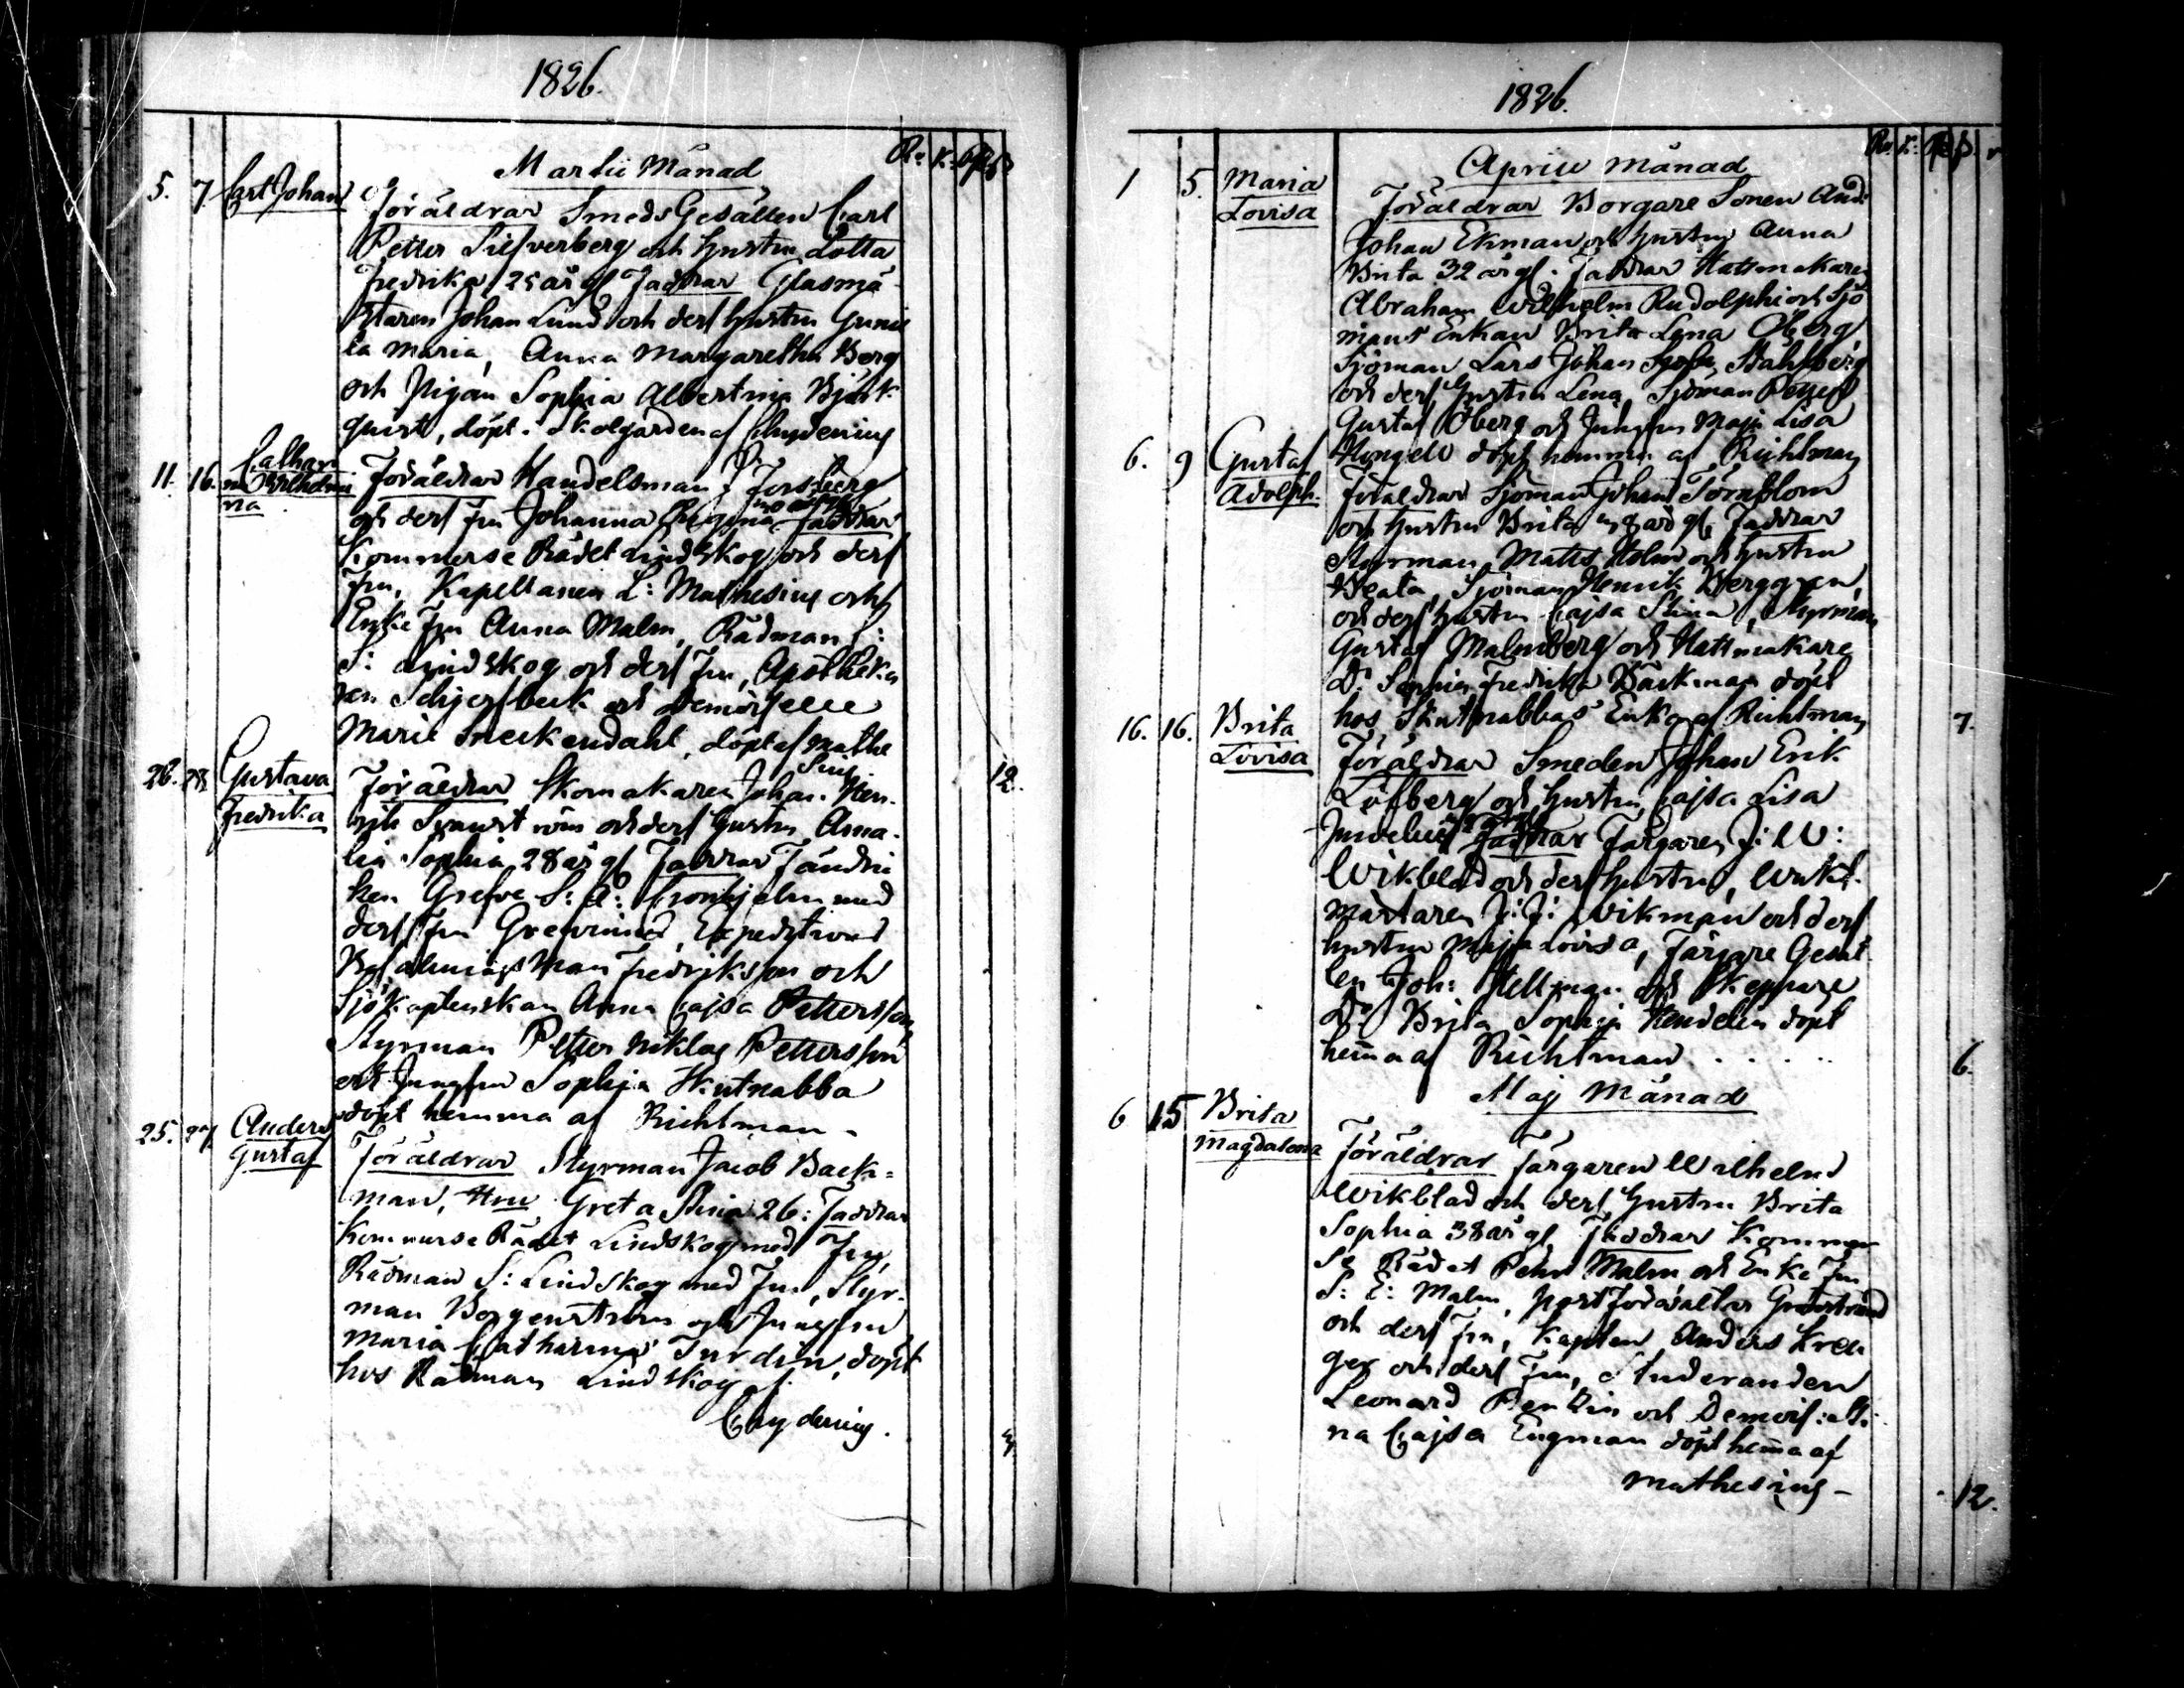 1826.
Martii Månad
R: K: 
5. 7 Carl Johan
Föräldrar Smeds Gesällen Carl
Petter Silfverberg och hustru Lotta
Fredrika 25 år gl Faddrar Glasmä-
staren Johan Lund och dess hustru Gunil
la Maria, Anna Margaretha Berg
och Pigan Sophia Albertina Björk
quist, döpt i Skolgården af Chydenius
11. 16. Catharina Wilhelmi
na
Föräldrar Handelsman J Forsberg
och dess fru Johanna Faddrar
Kommerse Rådet Lindskog och dess
Fru, Kapellanen L: Mathesius och
Enke Fru Anna Malm, Rådman
S: Lindskog och dess Fru, Apotheka
ren Schjerfbeck och Demoiselle
Marie Sneckendahl, döpt af Mathe
sius
26. 28 Gustava
Fredrika
12.
Föräldrar Skomakaren Johan Hen
rik och dess hustru Ama-
lia Sophia 28 år gl Faddrar Fändri
ken Grefve S: A: Cronhjelm med
dess Fru Grefvinna, Expeditions
Befalnings Man Fredrikson och
Sjökaptenskan Anna Cajsa Petterson
Styrman Petter Niklas Petterson
och Jungfru Sophia Skutnabba
döpt hemma af Richtman
25. 27 Anders
Gustaf
Föräldrar Styrman Jacob Back=
man, Hru Greta Stina 26: Faddrar
Kommerse Rådet Lindskog med Fru,
Rådman S: Lindskog med Fru, Styr-
man Borgenström och Jungfru
Maria Catharina Turdin, döpt
hos Rådman Lindskog af
Chydenius.
1826.
R: K:
Aprill Månad
1 5. Maria
Lovisa
Föräldrar Borgare Sonen And:
Johan Ekman och hustru Anna
Brita 32 år gl. Faddrar Hattmakaren
Abraham Wilhelm Rudolphi och Sjö
mans Enkan Brita Lena Öberg,
Sjöman Lars Johan Stahlberg
och dess hustru Lena, Sjöman Petter
Gustaf Öberg och Jungfru Maja Lisa
döpt hemma af Richtman
6. 9 Gustaf
Adolph.
Föräldrar Sjöman Johan Törnblom
och hustru Brita år gl, Faddrar
Styrman Matts Holm och hustru
Beata, Sjöman Henrik Berggren
och dess hustru Cajsa Stina, Styrman
Gustaf Malmberg och Hattmakare
D: Sophia Fredrika Bäckman döpt
hos Skutnabbas Enka af Richtman
7.
16. 16. Brita
Lovisa
Föräldrar Smeden Johan Erik
Löfberg och hustru Cajsa Lisa
Faddrar Färgaren J: W:
Wikblad och dess hustru, Wakt-
mästaren J: J: Wikman och dess
hustru Maja Lovisa, Färgare Gesäl
len Joh: Hellman och Skeppare
D: Brita Sophia Hendelin döpt
hema af Richtman . . . . .
6.
Maj Månad
6 15 Brita
Magdalena
Föräldrar Färgaren Wilhelm
Wikblad och dess hustru Brita
Sophia 38 år gl Faddrar Kommer
se Rådet Pehr Malm och Enke Fru
S: E: Malm, Postförvaltar
och dess Fru, Kapten Anders Kreü
ger och dess Fru, Studeranden
Leonard och Demois: 
na Cajsa Engman döpt hema af
Mathesius –
12.